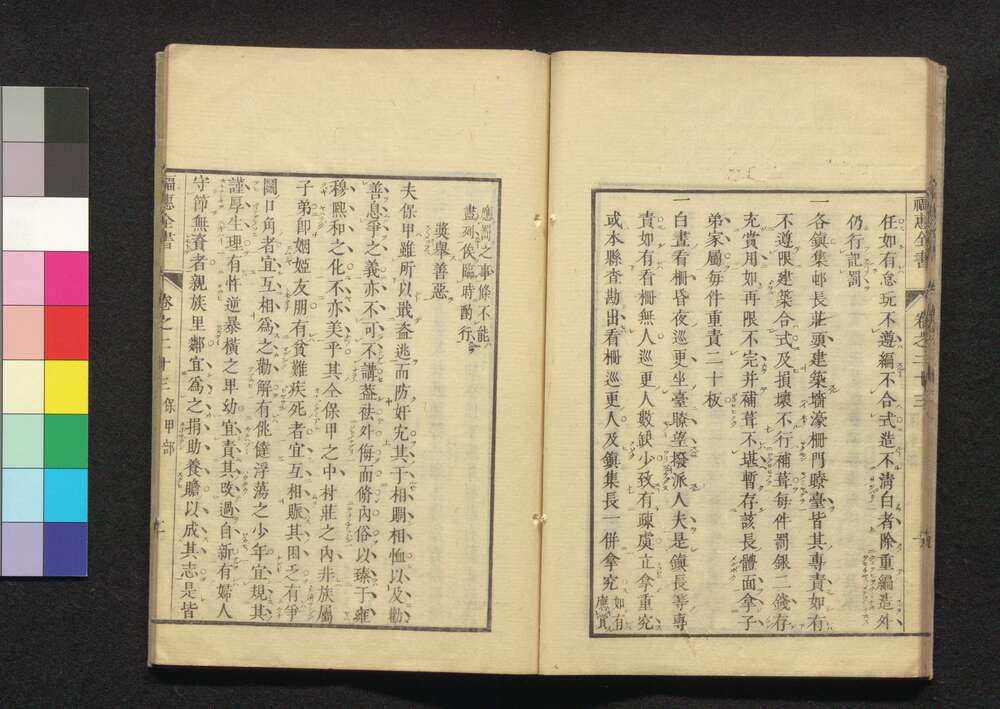 福惠全書 卷之二十三
任如有怠玩不遵編不合式造不淸白者除重編造外
仍行記罰
一各鎭集邨長莊頭建築墻濠柵門瞭臺皆其專責如有
不遵限建築合式及損壞不行補葺每件罰銀二錢存
充賞用如再限不完并補葺不堪暫存該長體面拿子
弟家屬每件重責二十板
一白晝看柵昏夜巡更坐臺瞭望撥派人夫是鎭長等專
責如有看柵無人巡更人數缺少致有疎虞立拿重究
或本縣査勘出看柵巡更人及鎭集長一併拿究如有應賞
應罰之事條不能盡列俟臨時酌行
奬舉善惡
夫保甲雖所以戢盗逃而防奸宄其于相賙相恤以及勸
善息爭之義亦不可不講葢袪外侮而脩內俗以臻于雍
穆熈和之化不亦美乎其仝保甲之中村莊之內非族屬
子弟即姻婭友朋有貧難疾死者宜互相賑其困乏有爭
鬬口角者宜互相爲之勸解有佻㒓浮蕩之少年宜規其
謹厚生理有忤逆暴横之卑幼宜責其改過自新有婦人
守節無資者親族里鄰宜爲之捐助養贍以成其志是皆
福惠全書 卷之二十三 保甲部